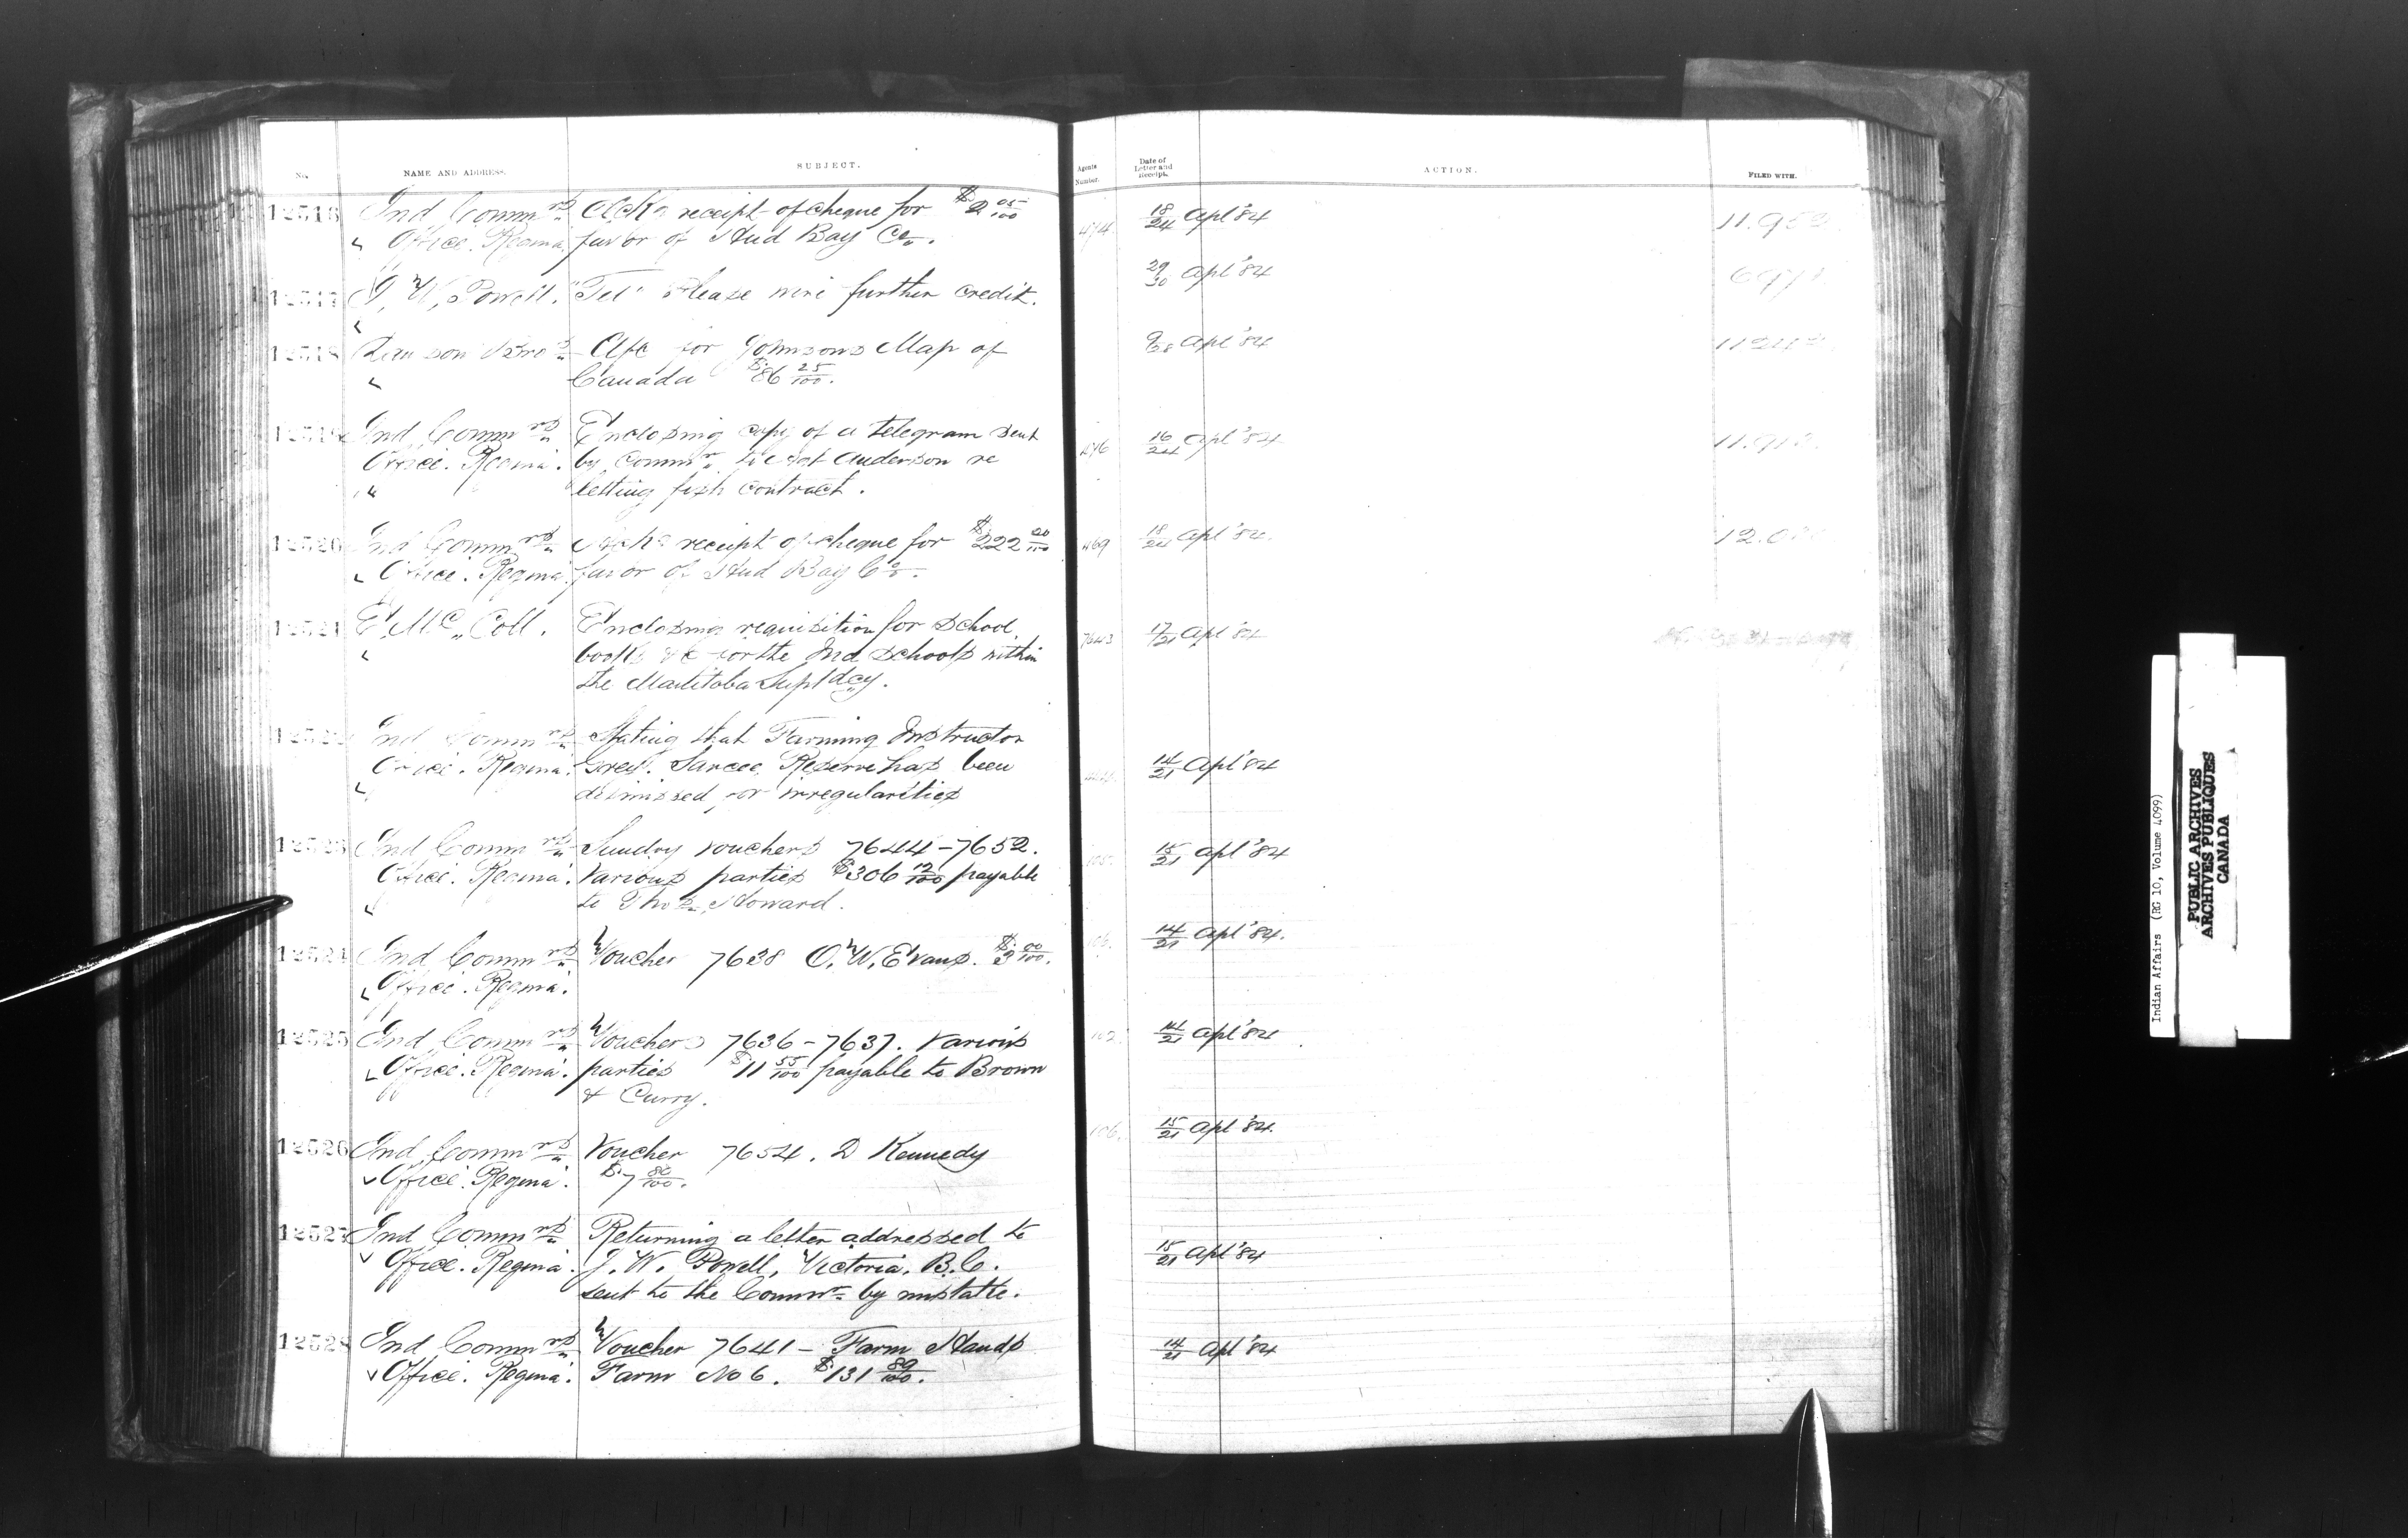 No. NAME AND ADDRESS. SUBJECT. Agents Number. Date of Letter and Receipt. ACTION. FILED WITH.
12516 Ind Commrs Ack receipt of cheque for $2 05/100 18/24 Apl '84
Office. Regina. favor of Hud Bay Co.
12517 I. W. Powell. "Tel" Please wire further credit. 29/30 Apl '84
12518 Bros Afc for Johnsons Map of 9/28 Apl '84
Canada $86 25/100.
12519 Ind Commrs Enclosing copy of a telegram sent 476 16/24 Apl '84
Office. Regina. by Commr. to Anderson re
letting fish contract.
12520 Ind Commrs receipt of cheque for $222 20/100 469 18/24 Apl '84
Office. Regina favor of Hud Bay Co.
12521 E. McColl. Enclosing requisition for School 7643 17/21 Apl '84
books &c for the Ind Schools within
the Manitoba Suptdcy.
12522 Ind Commrs Stating that Farming Instructor
Office. Regina. Sarcee Reserve has been 14/21 Apl '84
dismissed for irregularities
12523 Ind Commrs Sundry vouchers 7644-7652. 15/21 Apl '84
Office. Regina. Various parties $306 12/100 payable
to Thos. Howard.
12524 Ind Commrs Voucher 7638 O. W. Evans. $3 00/100. 14/21 Apl '84.
Office. Regina.
12525 Ind Commrs Vouchers 7636-7637. Various 102. 14/21 Apl '84
Office. Regina. parties $11 55/100 payable to Brown
& Curry.
12526 Ind Commrs Voucher 7654. D Kennedy 106. 15/21 Apl '84.
Office. Regina. $7 80/100.
12527 Ind Commrs Returning a letter addressed to
Office. Regina. J. W. Powell, Victoria. B.C. 15/21 Apl '84
sent to the Commr. by mistake.
12528 Ind Commrs Voucher 7641 - Farm Hands 14/21 Apl '84
Office. Regina. Farm No 6. $131 80/100.
Indian Affairs (RG 10, Volume 4099)
PUBLIC ARCHIVES
ARCHIVES PUBLIQUES
CANADA